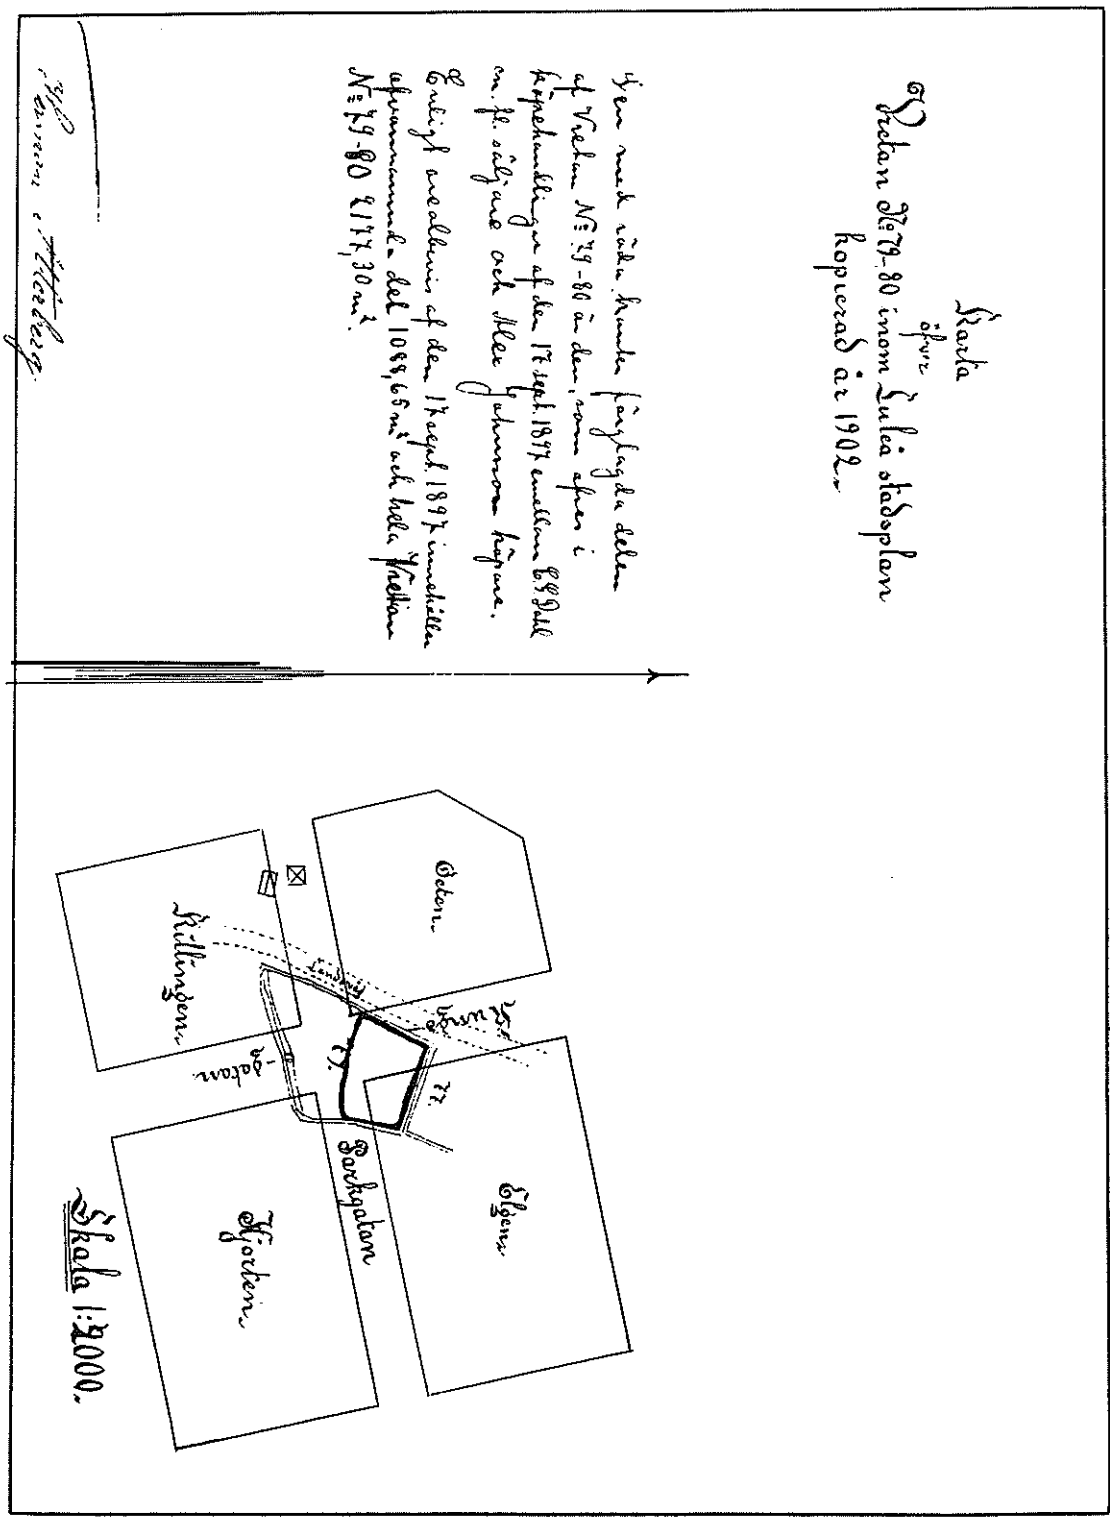 Karta
öfver
Vretan No 79-80 inom Luleå stadsplan
kopierad år 1902.
Den med röda kanter färglagda delen
af Vretan No 79-80 är den, som afses i
köpehandlingar af den 17 sept. 1897 emellan Dahl
m. fl. säljare och Alex Johansson köpare.
Enligt arealbevis af den 17 sept. 1897 innehåller
ofvannämnda del 1088,65 m² och hela Vretan
No 79-80 2177,30 m².
Herman Otterberg.
Geten.
Killingen.
Kungs
-gatan.
79.
77.
Parkgatan
Elgen.
Hjorten.
Skala 1:2000.